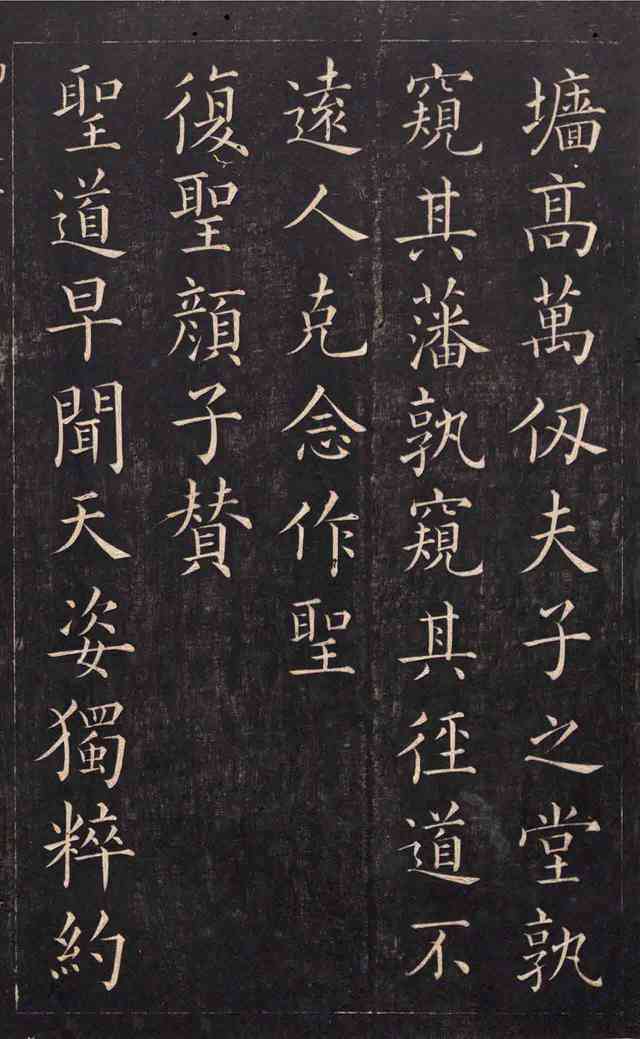 墻高萬仞夫子之堂孰
窺其藩孰窺其徑道不
遠人克念作聖
復聖顔子賛
聖道早聞天姿獨粹約